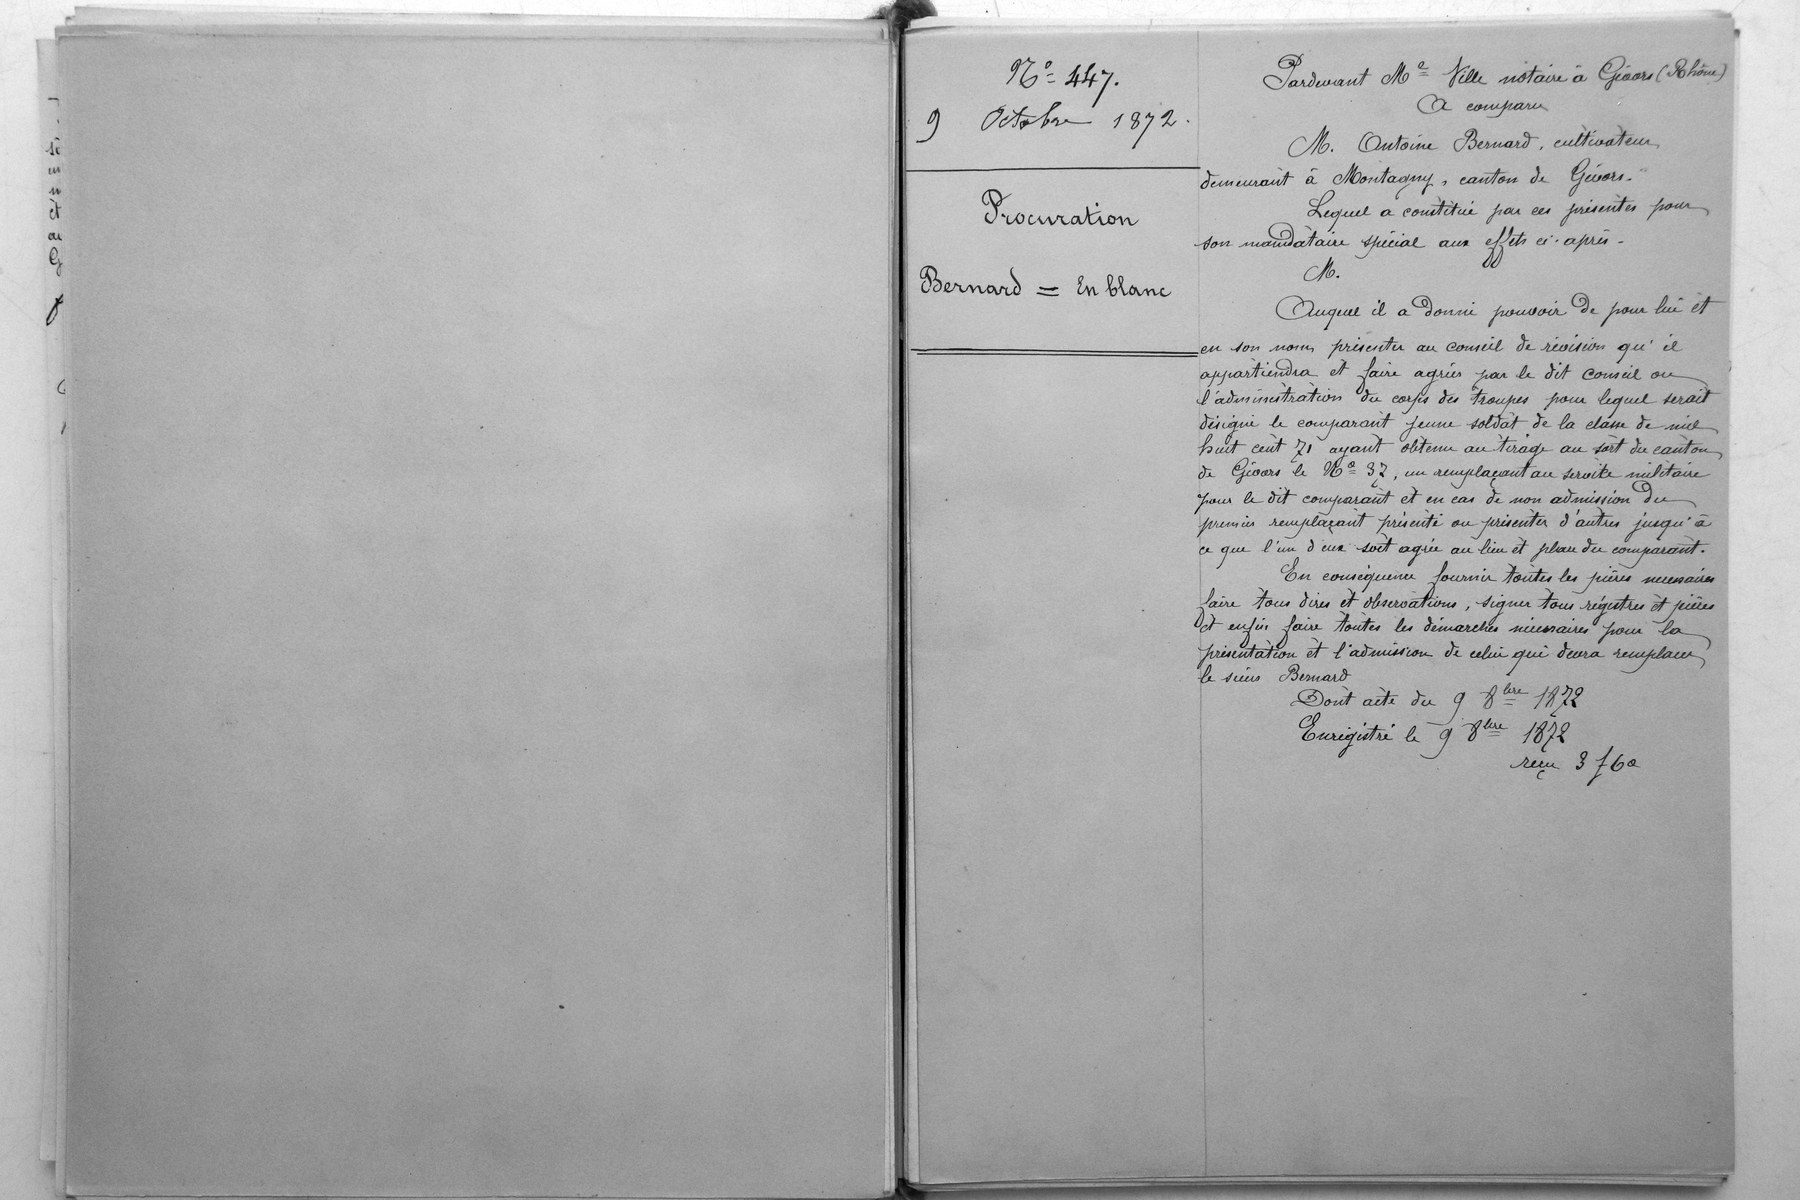 Nº 447.
9 Octobre 1872.
Procuration
Bernard = En blanc
Pardevant Me Ville notaire à Givors (Rhône)
A comparu
M. Antoine Bernard, cultivateur
demeurant à Montagny, canton de Givors.
Lequel a constitué par ces présentes pour
son mandataire spécial aux effets ci-après.
M.
Auquel il a donné pouvoir de pour lui et
en son nom présenter au conseil de révision qu'il
appartiendra et faire agréer par le dit Conseil ou
l'administration du corps des troupes pour lequel serait
désigné le comparant jeune soldat de la classe de mil
huit cent 71 ayant obtenu au tirage au sort du canton
de Givors le Nº 37, un remplaçant au service militaire
pour le dit comparant et en cas de non admission du
premier remplaçant présenté ou présenter d'autres jusqu'à
ce que l'un d'eux soit agrée au lieu et place du comparant.
En conséquence fournir toutes les pièces necessaires
faire tous dires et observations, signer tous régistres et pièces
et enfin faire toutes les démarches nécessaires pour la
présentation et l'admission de celui qui devra remplacer
le sieur Bernard
Dont acte du 9 8bre 1872
Enregistré le 9 8bre 1872
reçu 3 f 60